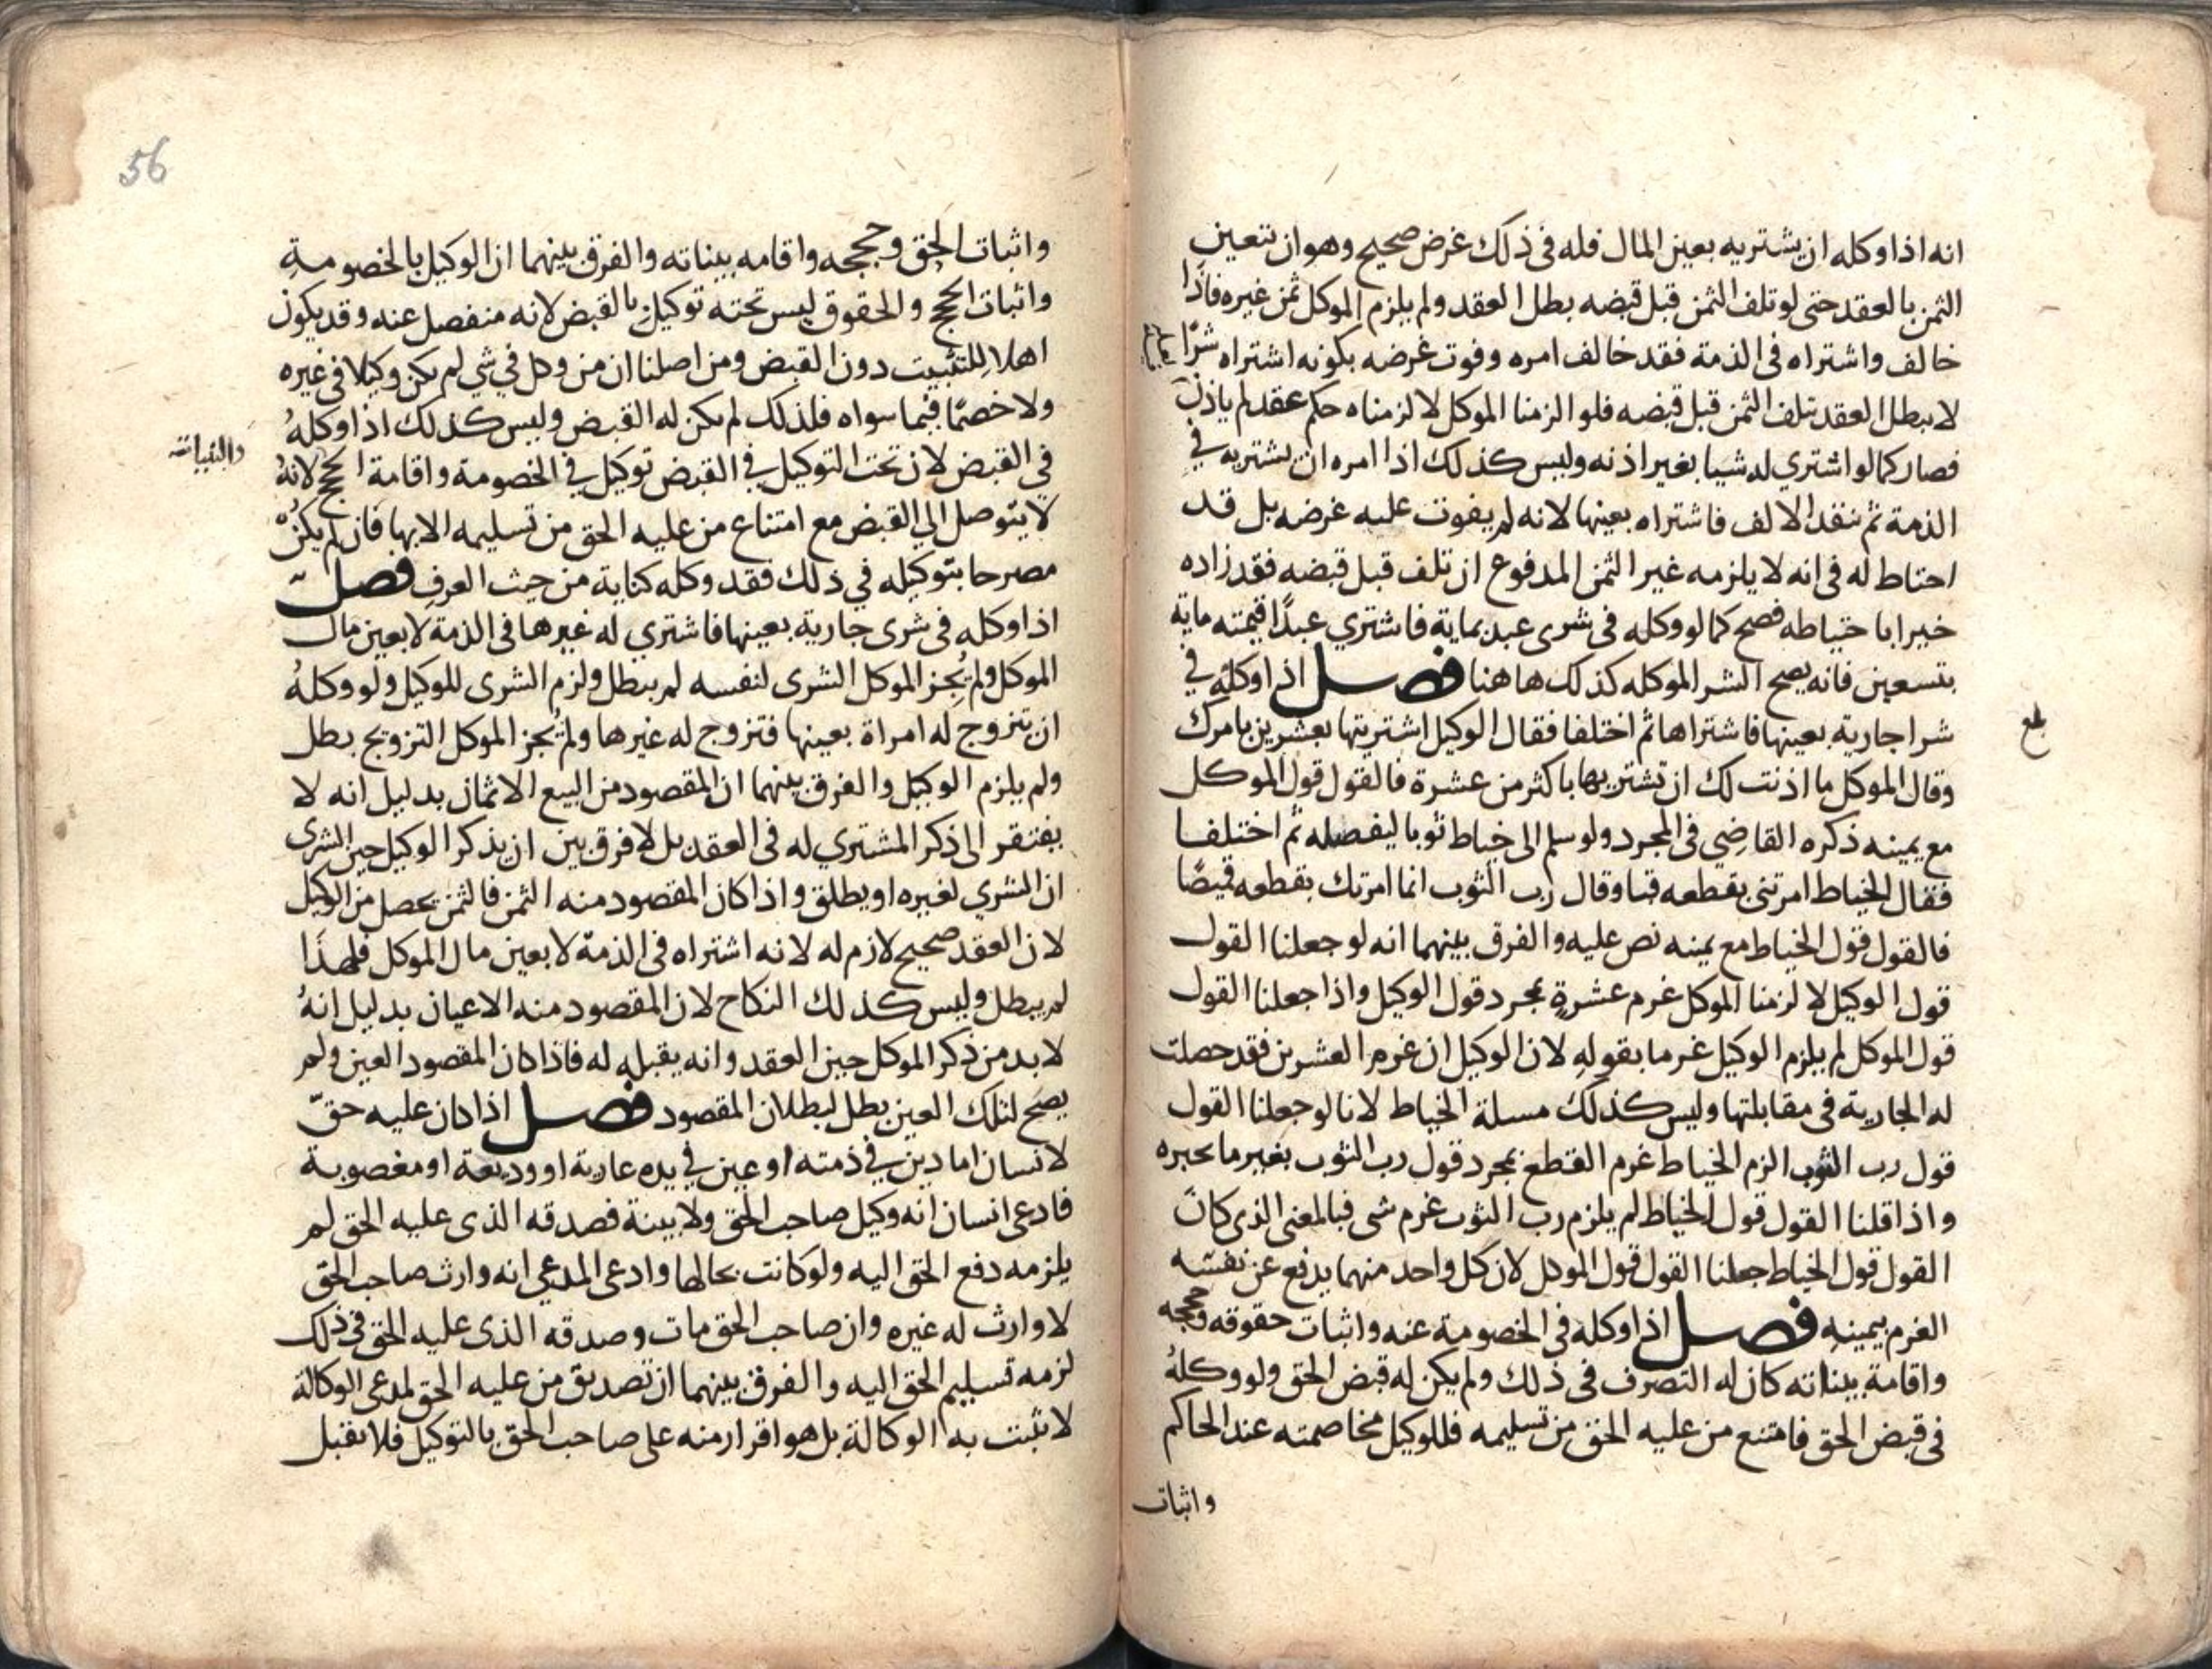 انه اذا وكله ان يشتريه بعين المال فله فى ذلك غرض صحيح وهو ان تتعين
الثمن بالعقد حتى لو تلف الثمن قبل قبضه بطل العقد ولم يلزم الموكل ثمن غيره فاذا
خالف واشتراه فى الذمة فقد خالف امره وفوت غرضه بكونه اشتراه شرًا
لا يبطل العقد بتلف الثمن قبل قبضه فلو الزمنا الموكل لالزمناه حكم عقد لم ياذن
فصار كما لو اشتري له شيا بغير اذنه وليس كذلك اذا امره ان يشتريه في
الذمة ثم ينقد الالف فاشتراه بعينها لانه لم يفوت عليه غرضه بل قد
احتاط له فى انه لا يلزمه غير الثمن المدفوع ان تلف قبل قبضه فقد زاده
خيرا باحتياطه فصح كما لو وكله فى شرى عبد بماية فاشتري عبدًا قيمته ماية
بتسعين فانه يصح الشرا لموكله كذلك هاهنا فصل اذا وكله في
شرا جارية بعينها فاشتراها ثم اختلفا فقال الوكيل اشتريتها بعشرين بامرك
بلغ
وقال الموكل ما اذنت لك ان تشتريها باكثر من عشرة فالقول قول الموكل
مع يمينه ذكره القاضي فى المجرد ولو سلم الى خياط ثوبا ليفصله ثم اختلفا
فقال الخياط امرتنى بقطعه قبا وقال رب الثوب انما امرتك بقطعه قميصًا
فالقول قول الخياط مع يمينه نص عليه والفرق بينهما انه لو جعلنا القول
قول الوكيل لالزمنا الموكل غرم عشرة بمجرد قول الوكيل واذا جعلنا القول
قول الموكل لم يلزم الوكيل غرما بقوله لان الوكيل ان غرم العشرين فقد حصلت
له الجارية فى مقابلتها وليس كذلك مسلة الخياط لانا لو جعلنا القول
قول رب الثوب الزم الخياط غرم القطع بمجرد قول رب الثوب بغير ما يجبره
واذا قلنا القول قول الخياط لم يلزم رب الثوب غرم شى فبالمعنى الذى كان
القول قول الخياط جعلنا القول قول الموكل لان كل واحد منهما يدفع عن نفسه
الغرم بيمينه فصل اذا وكله فى الخصومة عنه واثبات حقوقه وحججه
واقامة بيناته كان له التصرف فى ذلك ولم يكن له قبض الحق ولو وكله
فى قبض الحق فامتنع من عليه الحق من تسليمه فللوكيل مخاصمته عند الحاكم
واثبات
56
واثبات الحق وحججه واقامه بيناته والفرق بينهما ان الوكيل بالخصومة
واثبات الحجج والحقوق ليس تحته توكيل بالقبض لانه منفصل عنه وقد يكون
اهلا للتثبيت دون القبض ومن اصلنا ان من وكل في شي لم يكن وكيلا فى غيره
ولا خصمًا فيما سواه فلذلك لم يكن له القبض وليس كذلك اذا وكله
فى القبض لان تحت التوكيل في القبض توكيل في الخصومة واقامة الحجج لانه
لا يتوصل الي القبض مع امتناع من عليه الحق من تسليمه الا بها فان لم يكن
مصرحا بتوكيله في ذلك فقد وكله كناية من حيث العرف فصل
اذا وكله فى شرى جارية بعينها فاشتري له غيرها فى الذمة لا بعين مال
الموكل ولم يُجِز الموكل الشرى لنفسه لم يبطل ولزم الشرى للوكيل ولو وكله
ان يتزوج له امراة بعينها فتزوج له غيرها ولم يُجز الموكل التزويج بطل
ولم يلزم الوكيل والفرق بينهما ان المقصود من البيع الاثمان بدليل انه لا
يفتقر الى ذكر المشتري له فى العقد بل لا فرق بين ان يذكر الوكيل حين الشرى
ان الشري لغيره او يطلق واذا كان المقصود منه الثمن فالثمن يحصل من الوكيل
لان العقد صحيح لازم له لانه اشتراه فى الذمة لا بعين مال الموكل فلهذا
لم يبطل وليس كذلك النكاح لان المقصود منه الاعيان بدليل انه
لا بد من ذكر الموكل حين العقد وانه يقبله له فاذا كان المقصود العين ولم
يصح لتلك العين بطل لبطلان المقصود فصل اذا كان عليه حقّ
لانسان اما دين في ذمته او عين في يده عارية او وديعة او مغصوبة
فادعى انسان انه وكيل صاحب الحق ولا بينة فصدقه الذى عليه الحق لم
يلزمه دفع الحق اليه ولو كانت بحالها وادعى المدعي انه وارث صاحب الحق
لا وارث له غيره وان صاحب الحق مات وصدقه الذى عليه الحق فى ذلك
لزمه تسليم الحق اليه والفرق بينهما ان تصديق من عليه الحق لمدعى الوكالة
لا تثبت به الوكالة بل هو اقرار منه على صاحب الحق بالتوكيل فلا يقبل